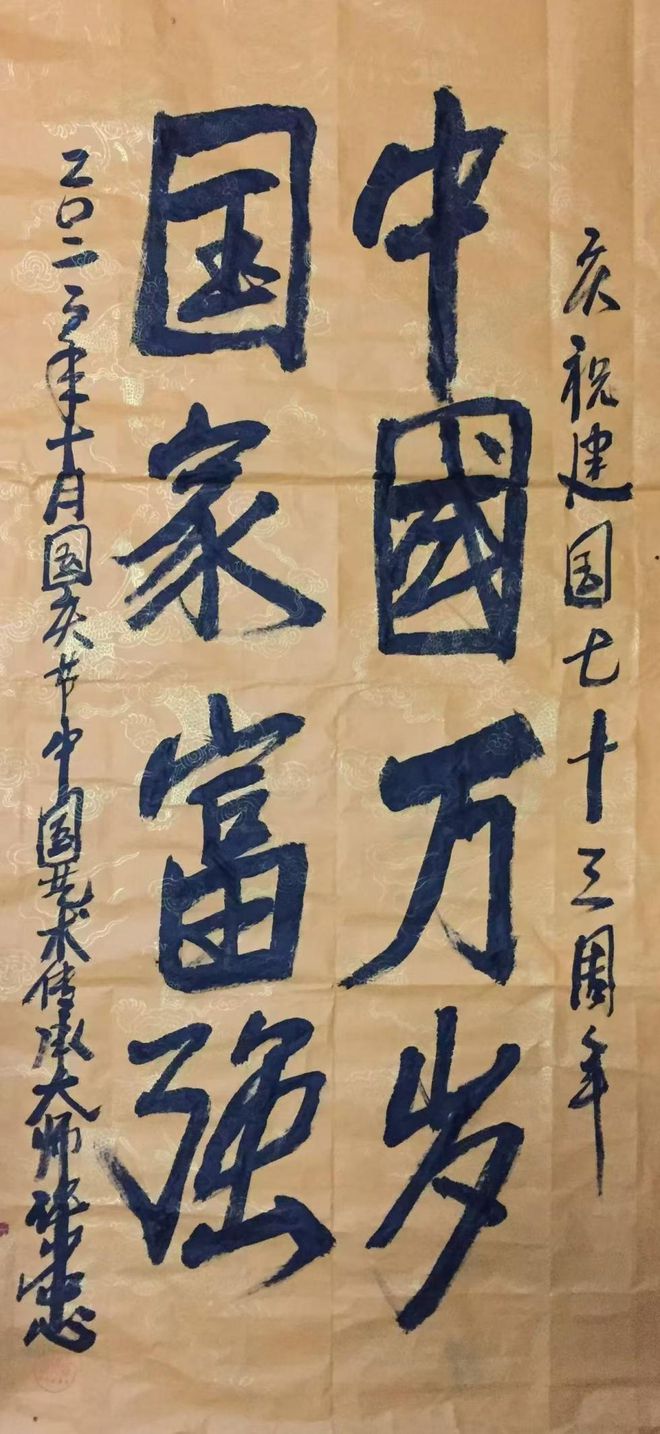 庆祝建国七十三周年
中國万岁
国家富强
二〇二二年十月国庆节中国艺术传承大师许忠